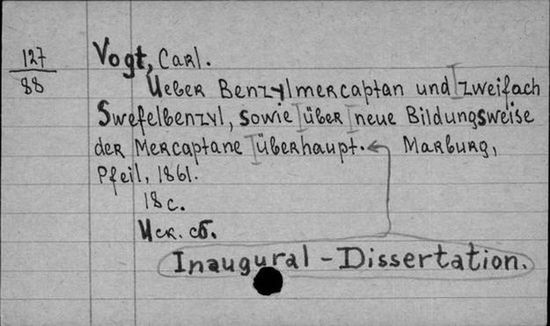 127
88
Vogt, Carl.
Ueber Benzylmercaptan und zweifach
Swefelbenzyl, sowie über neue Bildungsweise
der Mercaptane überhaupt. Marburg,
Pfeil, 1861.
18 с.
Иск. сб.
Inaugural - Dissertation.